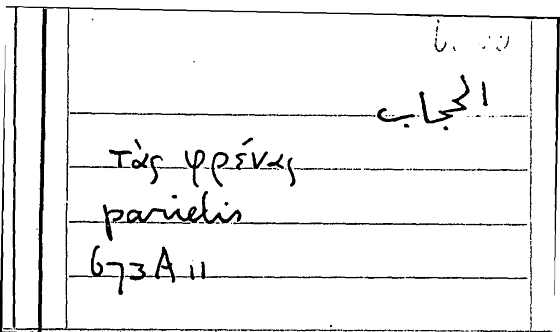 الحجاب
τὰς φρένας
parietis
673A11